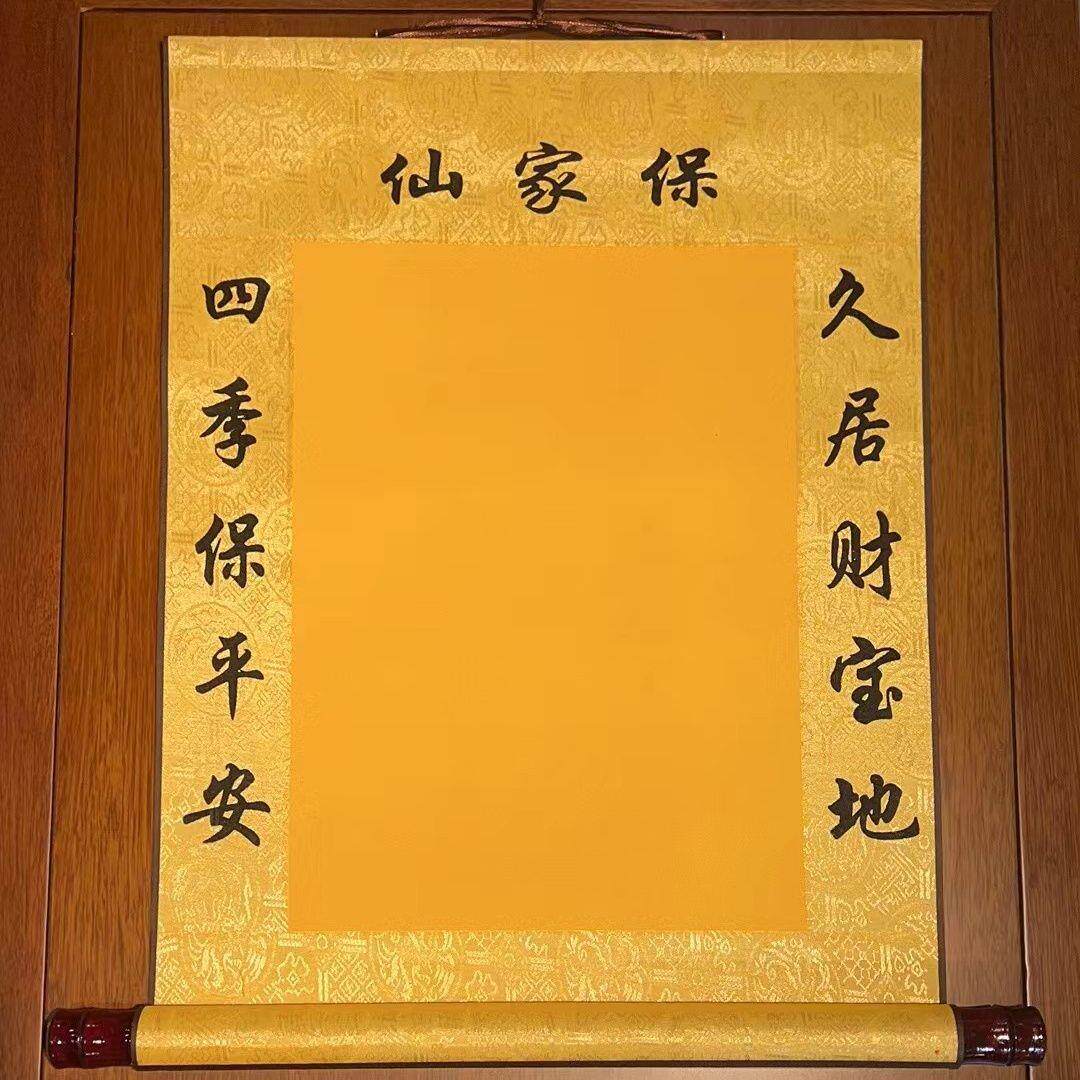 保家仙
久居财宝地
四季保平安